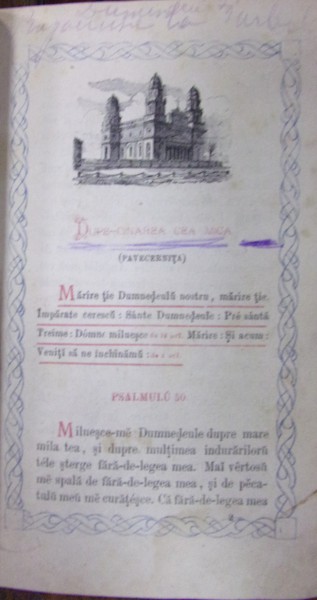 DUPE-CINAREA CEA MICA
(PAVECERNIȚA)
Mărire ție Dumneḑeulŭ nostru, mărire ție.
Împărate cerescŭ: Sânte Dumneḑeule: Pré sântă
Treime: Dómne miluesce de 12 orĭ. Mărire: Și acum:
Venițĭ să ne închinămŭ : de 3 orĭ.
PSALMULŬ 50
Miluesce-mĕ Dumneḑeule dupre mare
mila tea, și dupre mulțimea indurărilorŭ
téle șterge fără-de-legea mea. Maĭ vêrtosŭ
mĕ spală de fără-de-legea mea, și de pĕca-
tulŭ meŭ mĕ curățésce. Că fără-de-legea mea